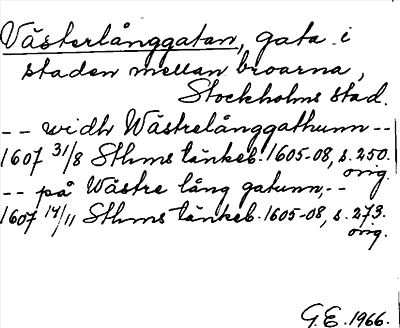 Västerlånggatan, gata i
staden mellan broarna,
Stockholms stad.
-- widh Wästrelånggathunn --
1607 31/8 Sthms tänkeb. 1605-08, s. 250.
orig.
-- på Wästre lång gatunn, --
1607 14/11 Sthms tänkeb. 1605-08, s. 273.
orig.
G.E. 1966.